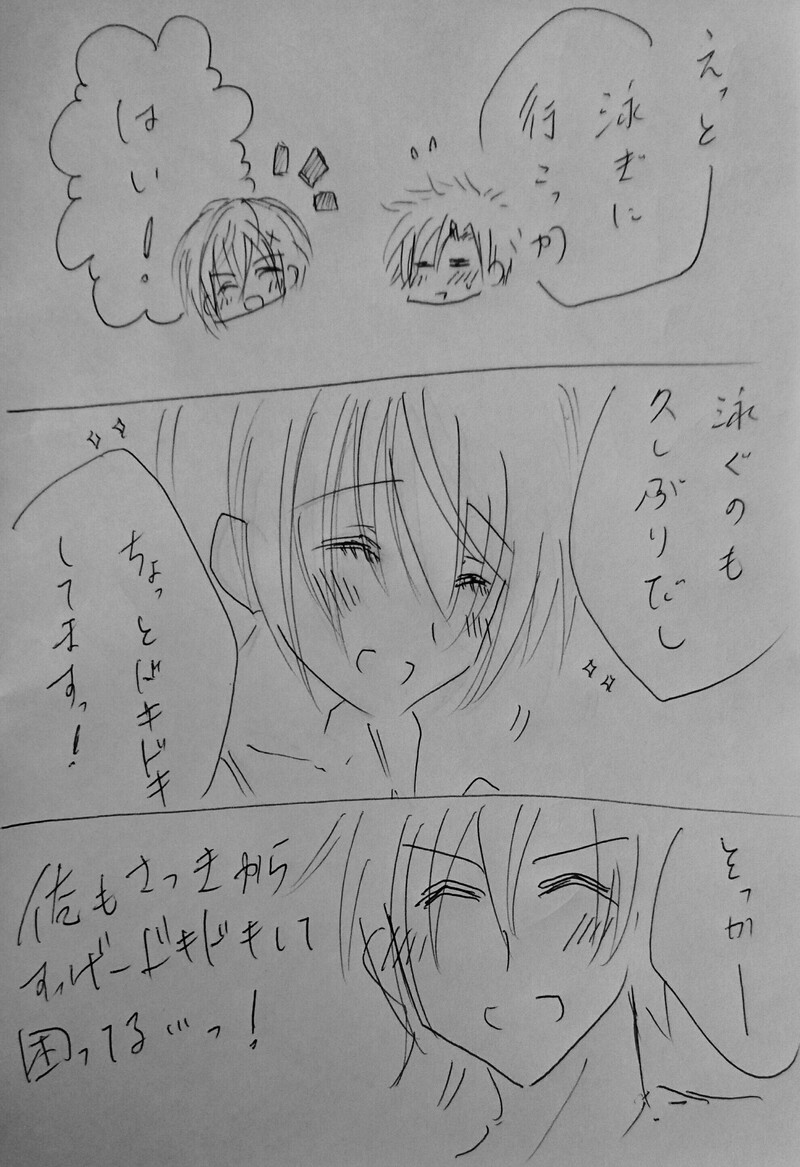 えっと
泳ぎに
行こっか
はい!
泳ぐのも
久しぶりだし
ちょっとドキドキ
してますっ!
そっかー
俺もさっきから
すっげードキドキして
困ってる…っ!